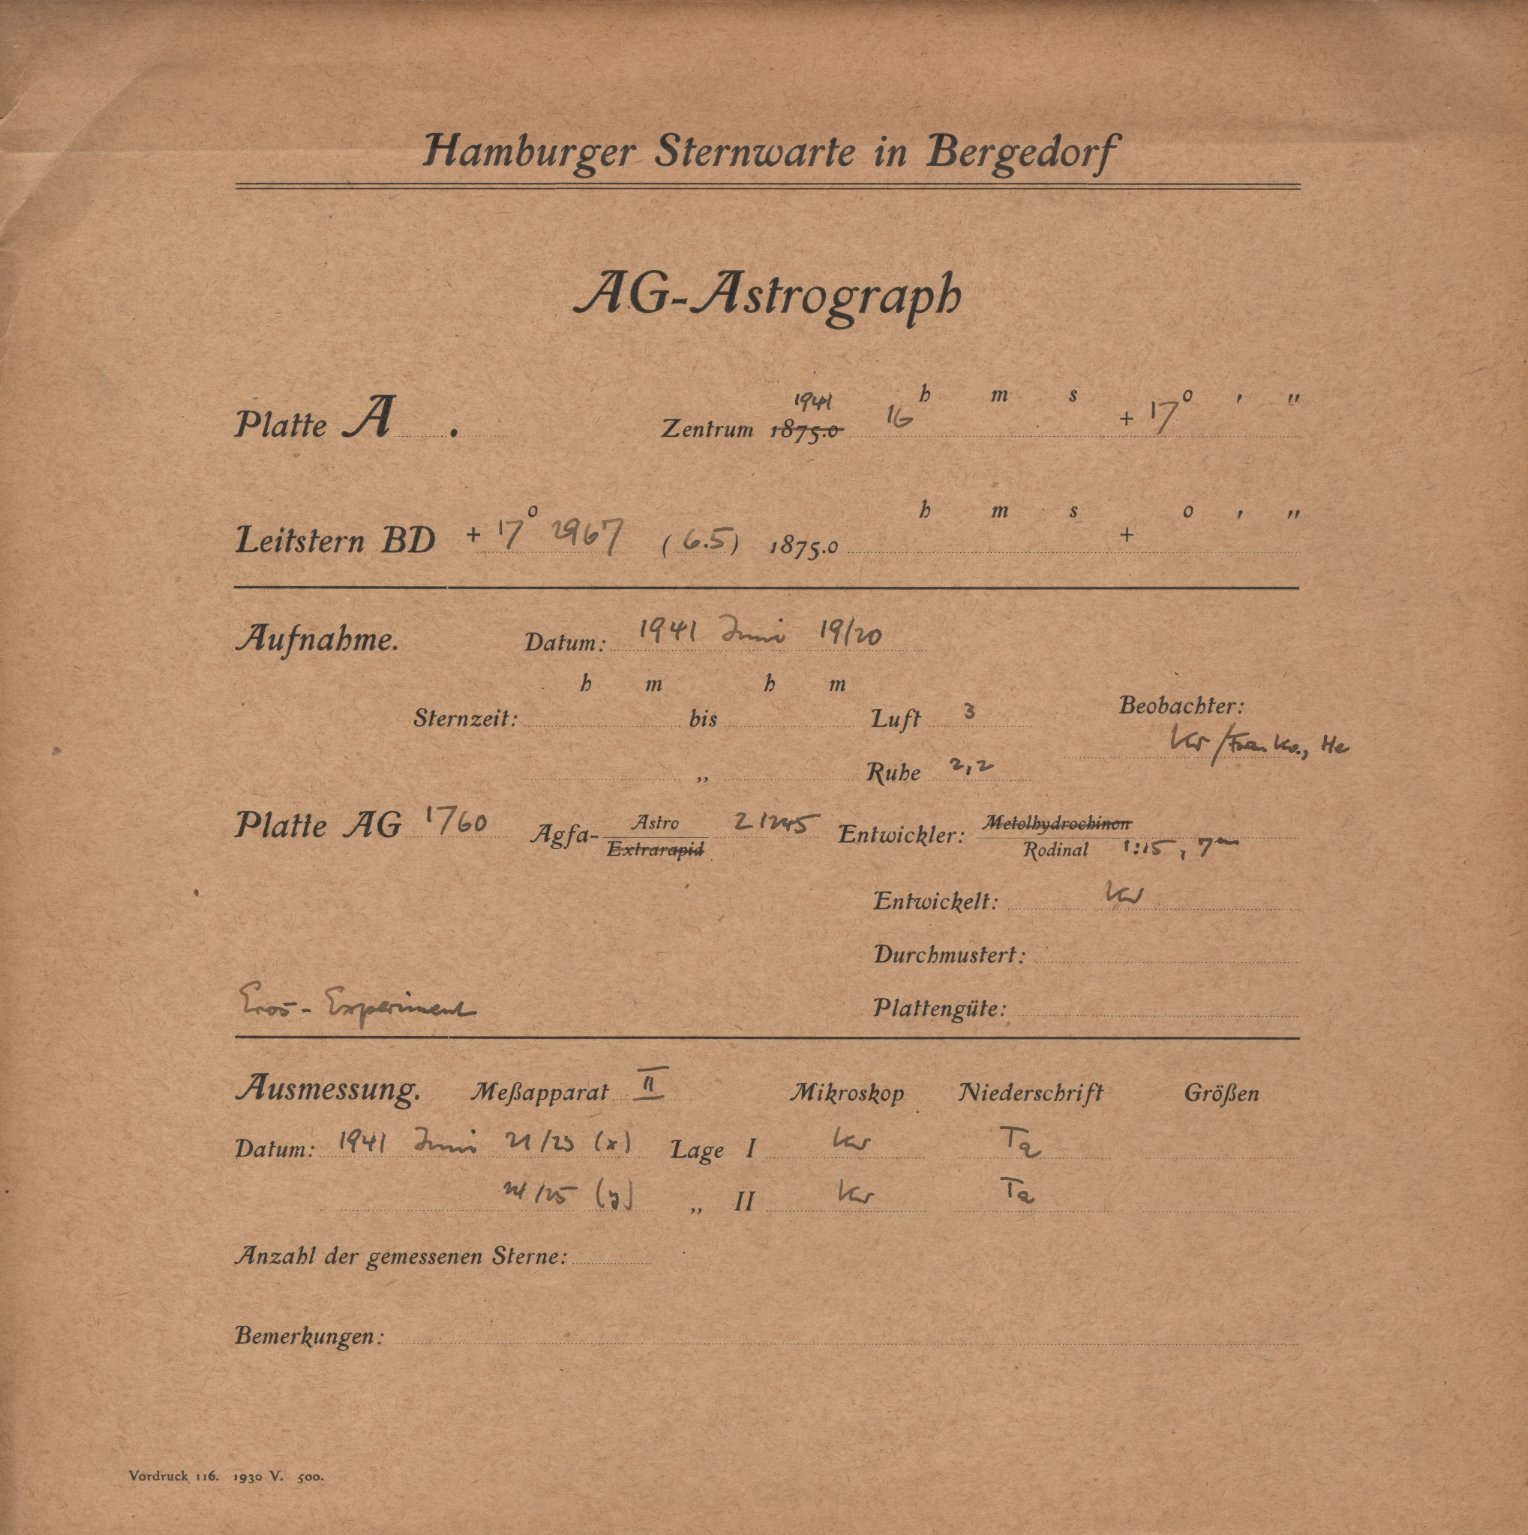 Hamburger Sternwarte in Bergedorf
AG-Astrograph
1941 h m s o ' "
Platte A . Zentrum 1875.0 16 + 17
o h m s o ' "
Leitstern BD + 17 2967 (6.5) 1875.0 +
Aufnahme. Datum: 1941 Juni 19/20
h m h m
Sternzeit: bis Luft 3 Beobachter:
Kr/Franke., He
„ Ruhe 2,2
Platte AG 1760 Agfa- Astro 21245 Entwickler: Metolhydrochinon
Extrarapid Rodinal 1:15, 7m
Entwickelt: Kr
Durchmustert:
Eros-Experiment Plattengüte:
Ausmessung. Meßapparat II Mikroskop Niederschrift Größen
Datum: 1941 Juni 21/23 (x) Lage I Kr Ta
24/25 (y) „ II Kr Ta
Anzahl der gemessenen Sterne:
Bemerkungen:
Vordruck 116. 1930 V. 500.